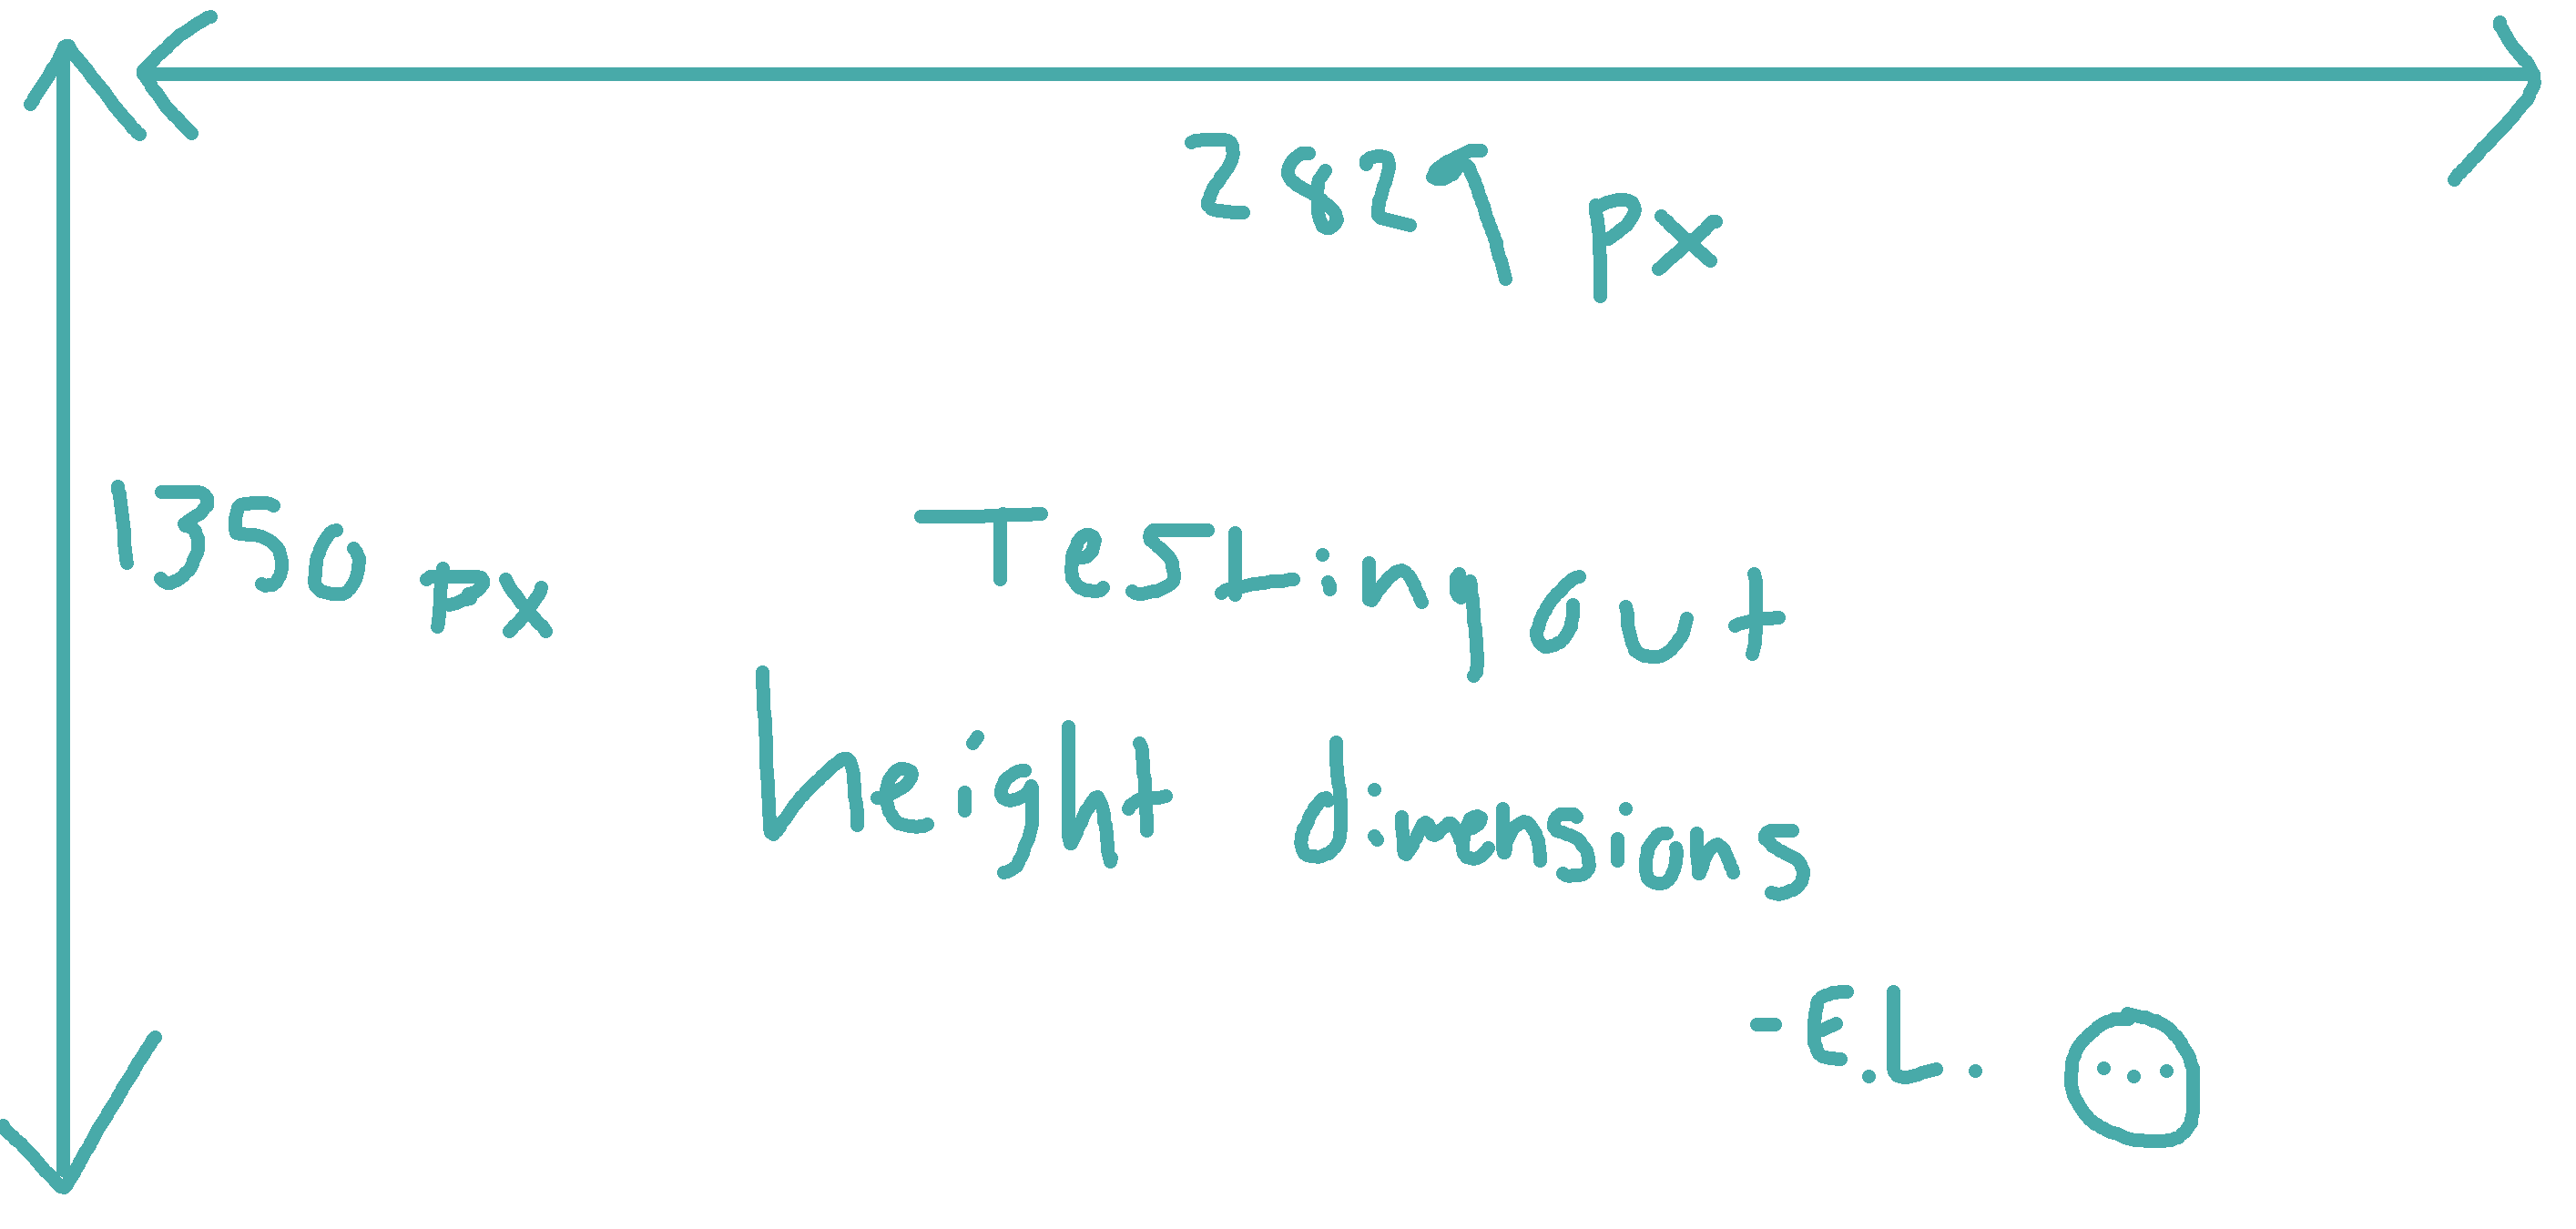 2829 px
1350 px
Testing out
height dimensions
-E.L.